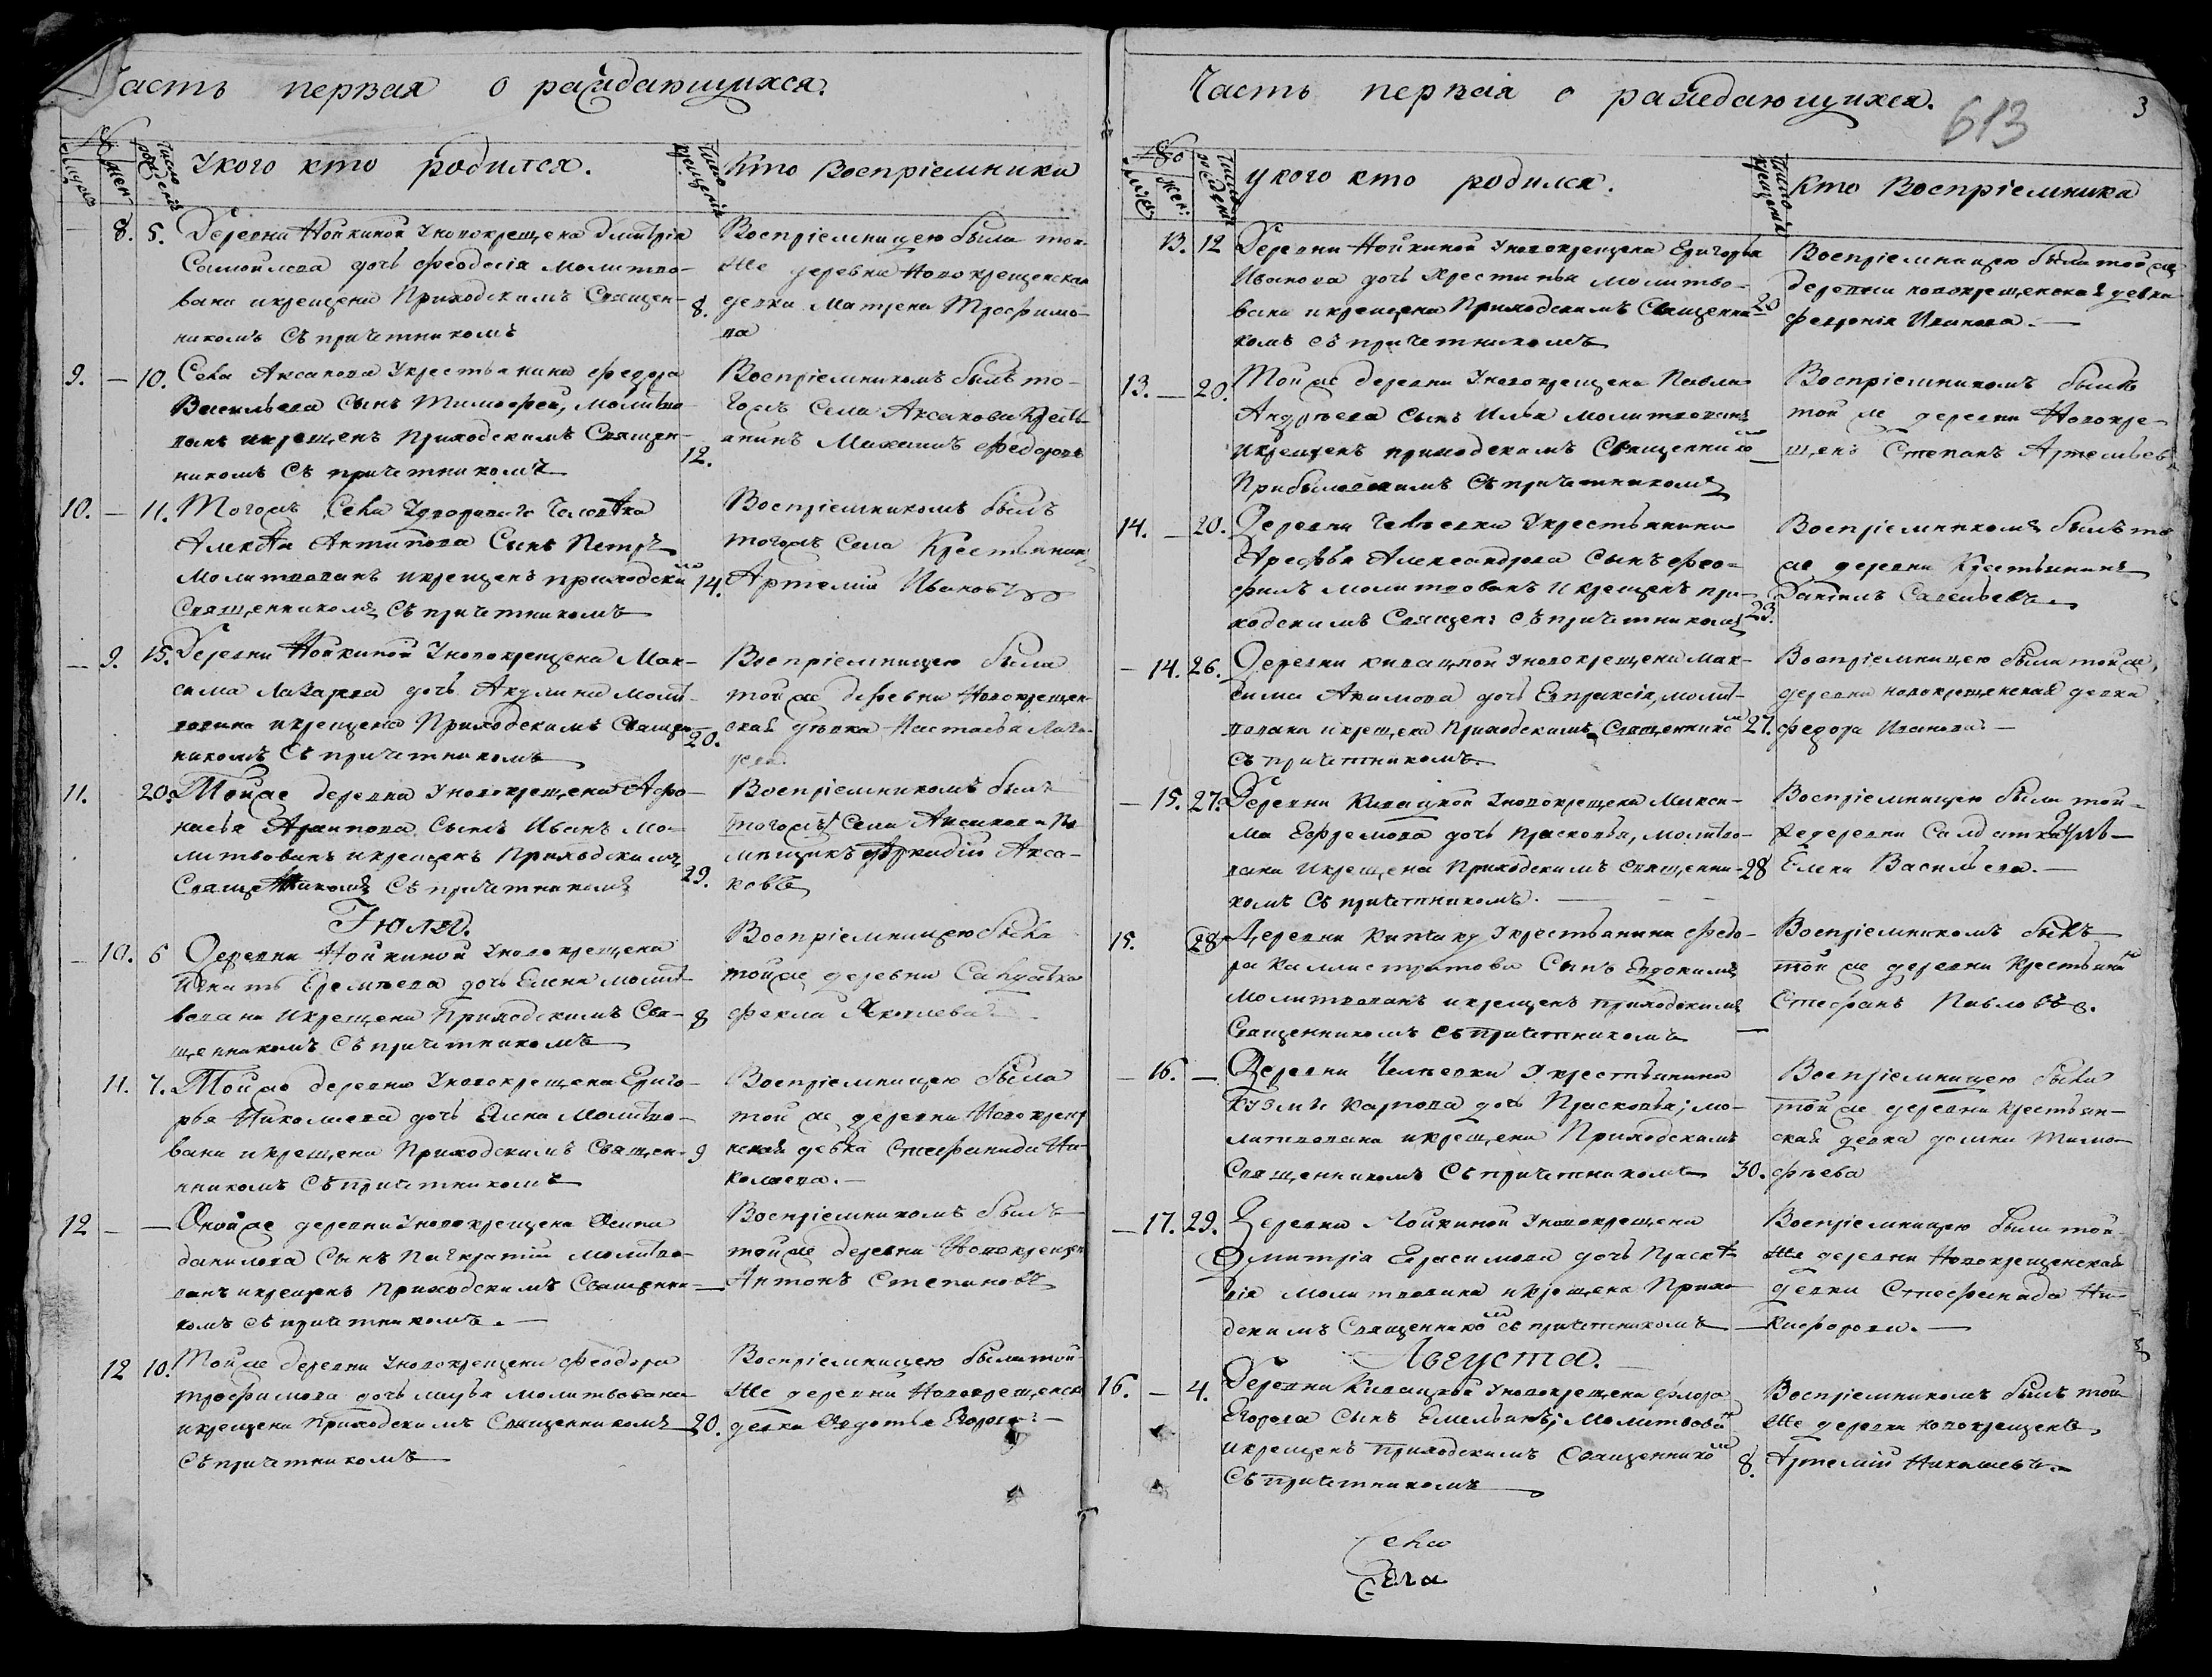 Часть первая о раждающихся.
№
муж: жен:
Число рожденія
У кого кто родился.
Число крещенія
Кто Воспріемники
— 8. 5. Деревни Нойкиной Уновокрещена Дмитрія
Самойлова дочь Феодосія молитво-
вана икрещена Приходскимъ Священ-
никомъ Съ причетникомъ
8.
Воспріемницею была той-
же деревни Новокрещенская
девка Матрена Трофимо-
ва
9. — 10. Села Аксакова Укрестьянина Федора
Васильева Сынъ Тимофей, молитво
ванъ икрещенъ Приходскимъ Священ-
никомъ Съ причетникомъ
12.
Воспріемникомъ былъ то-
гожъ Села Аксакова Кресть-
янинъ Михаилъ Федоровъ
10. — 11. Тогожъ Села Удвороваго Человека
Алексея Антипова Сынъ Петръ
молитвованъ икрещенъ приходскимъ
Священникомъ Съ причетникомъ
14.
Воспріемникомъ былъ
тогожъ Села Крестьянинъ
Артемий Ивановъ
— 9. 15. Деревни Нойкиной Уновокрещена Мак-
сима Лазарева дочь Акулина молит-
вована икрещена Приходскимъ Священ-
никомъ Съ причетникомъ
20.
Воспріемницею была
той же деревни Новокрещен-
ская девка Настасья Лаза-
рева
11. 20. Той же деревни Уновокрещена Афо-
насья Архипова Сынъ Иванъ мо-
литвованъ икрещенъ Приходскимъ
Священникомъ Съ причетникомъ
29.
Воспріемникомъ былъ
тогожъ Села Аксакова По-
мещикъ Аркадий Акса-
ковъ
Июля.
— 10. 6 Деревни Нойкиной Уновокрещена
Игнатья Еремеева дочь Елена молит-
вована икрещена Приходскимъ Свя-
щенникомъ Съ причетникомъ
8
Воспріемницею была
той же деревни Салдатка
Фекла Яковлева
11. 7. Той же деревни Уновокрещена Григо-
рья Николаева дочь Елена Молитво-
вана икрещена Приходскимъ Священ-
никомъ Съ причетникомъ
9
Воспріемницею была
той же деревни Новокрещен
ская девка Стефанида Ни-
колаева.—
12 — — Оной же деревни Уновокрещена Осипа
Данилова Сынъ Панкратий Молитво-
ванъ икрещенъ Приходскимъ Священни-
комъ съ причетникомъ.—
Воспріемникомъ былъ
той же деревни Новокрещенъ
Антонъ Степановъ
12 10. Той же деревни Уновокрещена Феодора
Трофимова дочь Марья молитвована
икрещена приходскимъ Священникомъ
Съ причетникомъ
20.
Воспріемницею была той-
же деревни Новокрещенска
девка Авдотья Егорова.—
Часть первая о раждающихся.
613
3
№
муж: жен:
Число рожденія
у кого кто родился.
Число крещенія
Кто Воспріемника
13. 12 Деревни Нойкиной Уновокрещена Григорья
Иванова дочь Хрестинья молитво-
вана икрещена Приходскимъ Священни-
комъ съ причетникомъ
20
Воспріемницею была той же
деревни новокрещенская девка
Феврония Иванова.—
13. — 20. Той же деревни Уновокрещена Павла
Андреева Сынъ Илья молитвованъ
икрещенъ приходскимъ Священникомъ
Прибыловскимъ Съ причетникомъ
Воспріемникомъ былъ
той же деревни Новокре-
щенъ Степанъ Артемьевъ
14. — 20. Деревни Укрестьянина
Арефья Александрова Сынъ Фео-
филъ молитвованъ икрещенъ при-
ходскимъ Священ: съ причетникомъ
23.
Воспріемникомъ былъ той
же деревни Крестьянинъ
Данилъ Савельевъ.
— 14. 26. Деревни Кивацкой Уновокрещена Мак-
сима Акимова дочь Евпраксія, молит-
вована икрещена Приходскимъ Священникомъ
съ причетникомъ.
27.
Воспріемницею была той же
деревни новокрещенская девка
Федора Иванова.—
— 15. 27. Деревни Кивацкой Уновокрещена Макси-
ма Ефремова дочь Прасковья, молитво-
вана икрещена Приходскимъ священни-
комъ Съ причетникомъ.
28
Воспріемницею была той-
же деревни Салдатка
Елена Васильева.—
15. 28 Деревни Укрестьянина Федо-
ра Каллистратова Сынъ Евдокимъ
Молитвованъ икрещенъ приходскимъ
Священникомъ съ причетникомъ
Воспріемникомъ былъ
той же деревни Крестьянинъ
Стефанъ Павловъ.
— 16. — Деревни Укрестьянина
Кузмы Карпова дочь Прасковья; мо-
литвована икрещена Приходскимъ
Священникомъ Съ причетникомъ
30.
Воспріемницею была
той же деревни крестьян-
ская девка домна Тимо-
феева
— 17. 29. Деревни Нойкиной Уновокрещена
Дмитрія Герасимова дочь Праско-
вія Молитвована икрещена Прихо
дскимъ Священникомъ съ причетникомъ
Воспріемницею была той-
же деревни Новокрещенская
девка Стефанида Ни-
кифорова.—
Августа.
16. — 4. Деревни Кивацкой Уновокрещена Флора
Егорова Сынъ Емельянъ; Молитвованъ
икрещенъ Приходскимъ Священникомъ
Съ причетникомъ
8.
Воспріемникомъ былъ той
же деревни новокрещенъ
Артемій Николаевъ.
Села
Села